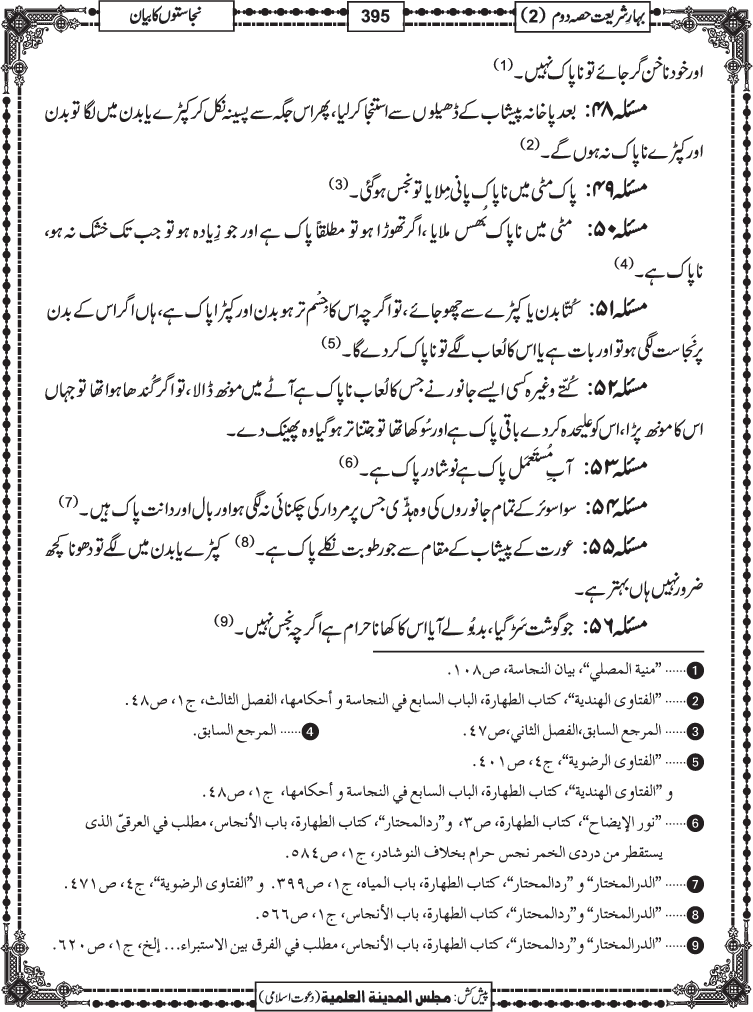 بہارِ شریعت حصہ دوم (2)
395
نجاستوں کا بیان
اور خود ناخن گر جائے تو ناپاک نہیں۔ (1)
مسئلہ ۴۸: بعد پاخانہ پیشاب کے ڈھیلوں سے استنجا کر لیا، پھر اس جگہ سے پسینہ نکل کر کپڑے یا بدن میں لگا تو بدن
اور کپڑے ناپاک نہ ہوں گے۔ (2)
مسئلہ ۴۹: پاک مٹی میں ناپاک پانی مِلایا تو نجس ہوگئی۔ (3)
مسئلہ ۵۰: مٹی میں ناپاک بُھس ملایا، اگر تھوڑا ہو تو مطلقاً پاک ہے اور جو زیادہ ہو تو جب تک خشک نہ ہو،
ناپاک ہے۔ (4)
مسئلہ ۵۱: کُتّا بدن یا کپڑے سے چھو جائے، تو اگرچہ اس کا جِسْم تر ہو بدن اور کپڑا پاک ہے، ہاں اگر اس کے بدن
پر نَجاست لگی ہو تو اور بات ہے یا اس کا لُعاب لگے تو ناپاک کر دے گا۔ (5)
مسئلہ ۵۲: کُتّے وغیرہ کسی ایسے جانور نے جس کا لُعاب ناپاک ہے آٹے میں مونھ ڈالا، تو اگر گُندھا ہوا تھا تو جہاں
اس کا مونھ پڑا، اس کو علیحدہ کر دے باقی پاک ہے اور سُوکھا تھا تو جتنا تر ہو گیا وہ پھینک دے۔
مسئلہ ۵۳: آبِ مُسْتَعمَل پاک ہے نوشادر پاک ہے۔ (6)
مسئلہ ۵۴: سوا سوئر کے تمام جانوروں کی وہ ہڈّی جس پر مردار کی چکنائی نہ لگی ہو اور بال اور دانت پاک ہیں۔ (7)
مسئلہ ۵۵: عورت کے پیشاب کے مقام سے جو رطوبت نکلے پاک ہے۔ (8) کپڑے یا بدن میں لگے تو دھونا کچھ
ضرور نہیں ہاں بہتر ہے۔
مسئلہ ۵۶: جو گوشت سَڑ گیا، بدبُو لے آیا اس کا کھانا حرام ہے اگرچہ نجس نہیں۔ (9)
1 ...... ”منية المصلي“، بيان النجاسة، ص١٠٨.
2 ...... ”الفتاوى الهندية“، كتاب الطهارة، الباب السابع في النجاسة و أحكامها، الفصل الثالث، ج١، ص٤٨.
3 ...... المرجع السابق،الفصل الثاني،ص٤٧. 4 ...... المرجع السابق.
5 ...... ”الفتاوى الرضوية“، ج٤، ص٤٠١.
و ”الفتاوى الهندية“، كتاب الطهارة، الباب السابع في النجاسة و أحكامها، ج١، ص٤٨.
6 ...... ”نور الإيضاح“، كتاب الطهارة، ص٣، و”ردالمحتار“، كتاب الطهارة، باب الأنجاس، مطلب في العرقيّ الذى
يستقطر من دردى الخمر نجس حرام بخلاف النوشادر، ج١، ص٥٨٤.
7 ...... ”الدرالمختار“ و ”ردالمحتار“، كتاب الطهارة، باب المياه، ج١، ص٣٩٩. و ”الفتاوى الرضوية“، ج٤، ص٤٧١.
8 ...... ”الدرالمختار“ و ”ردالمحتار“، كتاب الطهارة، باب الأنجاس، ج١، ص٥٦٦.
9 ...... ”الدرالمختار“ و”ردالمحتار“، كتاب الطهارة، باب الأنجاس، مطلب في الفرق بين الاستبراء... إلخ، ج١، ص٦٢٠.
پیش کش: مجلس المدینة العلمیة (دعوت اسلامی)